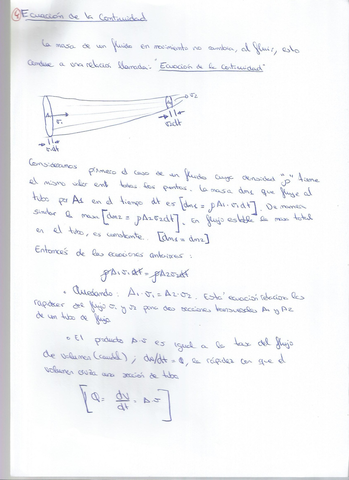 ④ Ecuación de la Continuidad
La masa de un fluido en movimiento no cambia, al fluir, esto
conduce a una relación llamada: "Ecuación de la Continuidad"
A1 v1 v2
v1dt v2dt
Consideramos primero el caso de un fluido cuya densidad "ρ" tiene
el mismo valor en todos los puntos. La masa dm1 que fluye al
tubo por A1 en el tiempo dt es [dm1 = ρA1·v1dt]. De manera
similar la masa [dm2 = ρA2v2dt], en flujo estable la masa total
en el tubo, es constante. [dm1 = dm2]
Entonces de las ecuaciones anteriores:
ρA1·v1dt = ρA2v2dt
• Quedando: A1·v1 = A2·v2. Esta ecuación relaciona las
rapideces del flujo v1 y v2 para dos secciones transversales A1 y A2
de un tubo de flujo
• El producto A·v es igual a la tasa del flujo
de volumen (caudal); dv/dt = Q, la rapidez con que el
volumen cruza una sección de tubo
[Q = dV/dt = A·v]